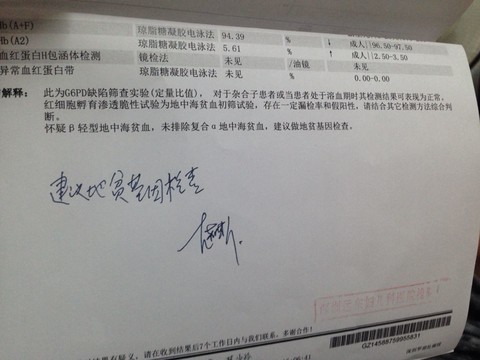 Hb(A+F) 琼脂糖凝胶电泳法 94.39 % ↓ 成人||96.50-97.50
Hb(A2) 琼脂糖凝胶电泳法 5.61 % ↑ 成人||2.50-3.50
血红蛋白H包涵体检测 镜检法 未见 /油镜 未见
异常血红蛋白带 琼脂糖凝胶电泳法 未见 % 0.00-0.00
解释: 此为G6PD缺陷筛查实验(定量比值), 对于杂合子患者或当患者处于溶血期时其检测结果可表现为正常。
红细胞孵育渗透脆性试验为地中海贫血初筛试验,存在一定漏检率和假阳性,请结合其它检测方法综合判
断。
怀疑β轻型地中海贫血,未排除复合α地中海贫血,建议做地贫基因检查。
建议地贫基因检查
GZ1458875995583
请在收到结果后7个工作日内与我们联系,多谢合作!